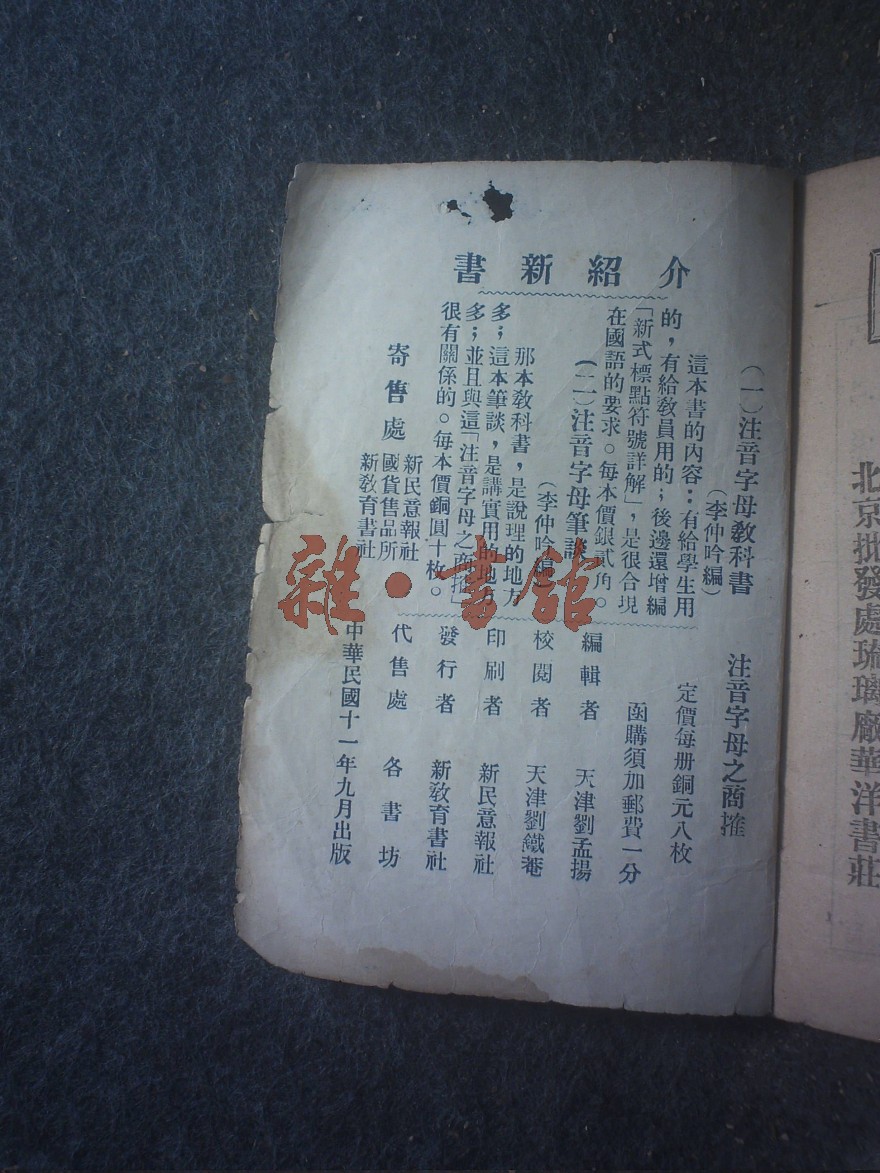 介紹新書
(一)注音字母教科書
(李仲吟編)
這本書的內容:有給學生用
的,有給教員用的;後邊還增編
「新式標點符號詳解」,是很合現
在國語的要求。每本價銀貳角。
(二)注音字母筆談
(李仲吟編)
那本教科書,是說理的地方
多;這本筆談,是講實用的地方
多;並且與這「注音字母之商搉」
很有關係的。每本價銅圓十枚。
寄售處
新民意報社
國貨售品所
新教育書社
注音字母之商搉
定價每册銅元八枚
函購須加郵費一分
編輯者 天津劉孟揚
校閱者 天津劉鐵菴
印刷者 新民意報社
發行者 新教育書社
代售處 各書坊
中華民國十一年九月出版
北京批發處琉璃廠華洋書莊
雜·書館